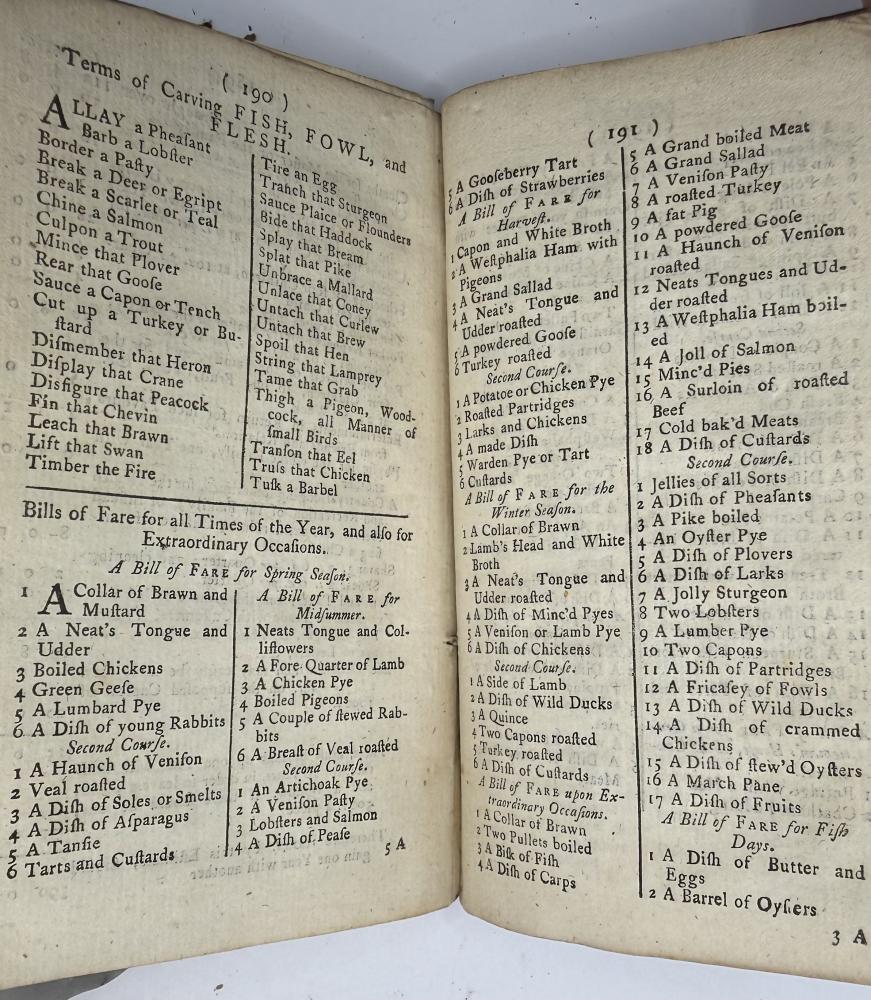 ( 190 )
Terms of Carving FISH, FOWL, and
FLESH.
ALLAY a Pheaſant
Barb a Lobſter
Border a Paſty
Break a Deer or Egript
Break a Scarlet or Teal
Chine a Salmon
Culpon a Trout
Mince that Plover
Rear that Gooſe
Sauce a Capon or Tench
Cut up a Turkey or Bu-
ſtard
Diſmember that Heron
Diſplay that Crane
Disfigure that Peacock
Fin that Chevin
Leach that Brawn
Lift that Swan
Timber the Fire
Tire an Egg
Tranch that Sturgeon
Sauce Plaice or Flounders
Bide that Haddock
Splay that Bream
Splat that Pike
Unbrace a Mallard
Unlace that Coney
Untach that Curlew
Untach that Brew
Spoil that Hen
String that Lamprey
Tame that Grab
Thigh a Pigeon, Wood-
cock, all Manner of
ſmall Birds
Tranſon that Eel
Truſs that Chicken
Tuſk a Barbel
Bills of Fare for all Times of the Year, and alſo for
Extraordinary Occaſions.
A Bill of FARE for Spring Seaſon.
1 A Collar of Brawn and
Muſtard
2 A Neat's Tongue and
Udder
3 Boiled Chickens
4 Green Geeſe
5 A Lumbard Pye
6 A Diſh of young Rabbits
Second Courſe.
1 A Haunch of Veniſon
2 Veal roaſted
3 A Diſh of Soles or Smelts
4 A Diſh of Aſparagus
5 A Tanſie
6 Tarts and Cuſtards
A Bill of FARE for
Midſummer.
1 Neats Tongue and Col-
liflowers
2 A Fore Quarter of Lamb
3 A Chicken Pye
4 Boiled Pigeons
5 A Couple of ſtewed Rab-
bits
6 A Breaſt of Veal roaſted
Second Courſe.
1 An Artichoak Pye
2 A Veniſon Paſty
3 Lobſters and Salmon
4 A Diſh of Peaſe
5 A
( 191 )
5 A Gooſeberry Tart
6 A Diſh of Strawberries
A Bill of FARE for
Harveſt.
1 Capon and White Broth
2 A Weſtphalia Ham with
Pigeons
3 A Grand Sallad
4 A Neat's Tongue and
Udder roaſted
5 A powdered Gooſe
6 Turkey roaſted
Second Courſe.
1 A Potatoe or Chicken Pye
2 Roaſted Partridges
3 Larks and Chickens
4 A made Diſh
5 Warden Pye or Tart
6 Cuſtards
A Bill of FARE for the
Winter Seaſon.
1 A Collar of Brawn
2 Lamb's Head and White
Broth
3 A Neat's Tongue and
Udder roaſted
4 A Diſh of Minc'd Pyes
5 A Veniſon or Lamb Pye
6 A Diſh of Chickens
Second Courſe.
1 A Side of Lamb
2 A Diſh of Wild Ducks
3 A Quince
4 Two Capons roaſted
5 Turkey roaſted
6 A Diſh of Cuſtards
A Bill of FARE upon Ex-
traordinary Occaſions.
1 A Collar of Brawn
2 Two Pullets boiled
3 A Biſk of Fiſh
4 A Diſh of Carps
5 A Grand boiled Meat
6 A Grand Sallad
7 A Veniſon Paſty
8 A roaſted Turkey
9 A fat Pig
10 A powdered Gooſe
11 A Haunch of Veniſon
roaſted
12 Neats Tongues and Ud-
der roaſted
13 A Weſtphalia Ham boil-
ed
14 A Joll of Salmon
15 Minc'd Pies
16 A Surloin of roaſted
Beef
17 Cold bak'd Meats
18 A Diſh of Cuſtards
Second Courſe.
1 Jellies of all Sorts
2 A Diſh of Pheaſants
3 A Pike boiled
4 An Oyſter Pye
5 A Diſh of Plovers
6 A Diſh of Larks
7 A Jolly Sturgeon
8 Two Lobſters
9 A Lumber Pye
10 Two Capons
11 A Diſh of Partridges
12 A Fricaſey of Fowls
13 A Diſh of Wild Ducks
14 A Diſh of crammed
Chickens
15 A Diſh of ſtew'd Oyſters
16 A March Pane
17 A Diſh of Fruits
A Bill of FARE for Fiſh
Days.
1 A Diſh of Butter and
Eggs
2 A Barrel of Oyſters
3 A